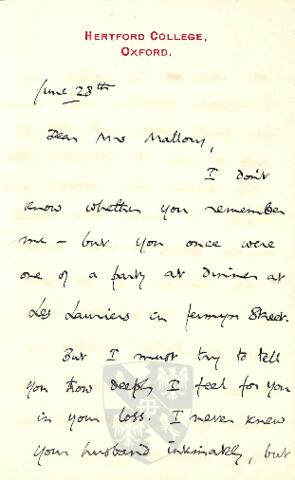 HERTFORD COLLEGE,
OXFORD.
June 28th
Dear Mrs Mallory,
I don't
know whether you remember
me – but you once were
one of a party at dinner at
Les Lauriers in Jermyn Street.
But I must try to tell
you how deeply I feel for you
in your loss. I never knew
your husband intimately, but